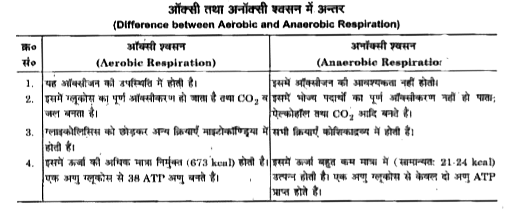 ऑक्सी तथा अनॉक्सी श्वसन में अन्तर
(Difference between Aerobic and Anaerobic Respiration)
क्र० सं०
ऑक्सी श्वसन
(Aerobic Respiration)
अनॉक्सी श्वसन
(Anaerobic Respiration
1. यह ऑक्सीजन की उपस्थिति में होती है।
इसमें ऑक्सीजन की आवश्यकता नहीं होती।
2. इसमें ग्लूकोस का पूर्ण ऑक्सीकरण हो जाता है तथा CO2 व
जल बनता है।
इसमें भोज्य पदार्थों का पूर्ण ऑक्सीकरण नहीं हो पाता;
ऐल्कोहॉल तथा CO2 आदि बनते है।
3. ग्लाइकोलिसिस को छोड़कर अन्य क्रियाएँ माइटोकॉण्ड्रिया में
होती हैं।
सभी क्रियाएँ कोशिकाद्रव्य में होती है।
4. इसमें ऊर्जा की अधिक मात्रा निर्मुक्त (673 kcal) होती है।
एक अणु ग्लूकोस से 38 ATP अणु बनते हैं।
इसमें ऊर्जा बहुत कम मात्रा में (सामान्यतः 21-24 kcal)
उत्पन्न होती है। एक अणु ग्लूकोस से केवल दो अणु ATP
प्राप्त होते हैं।